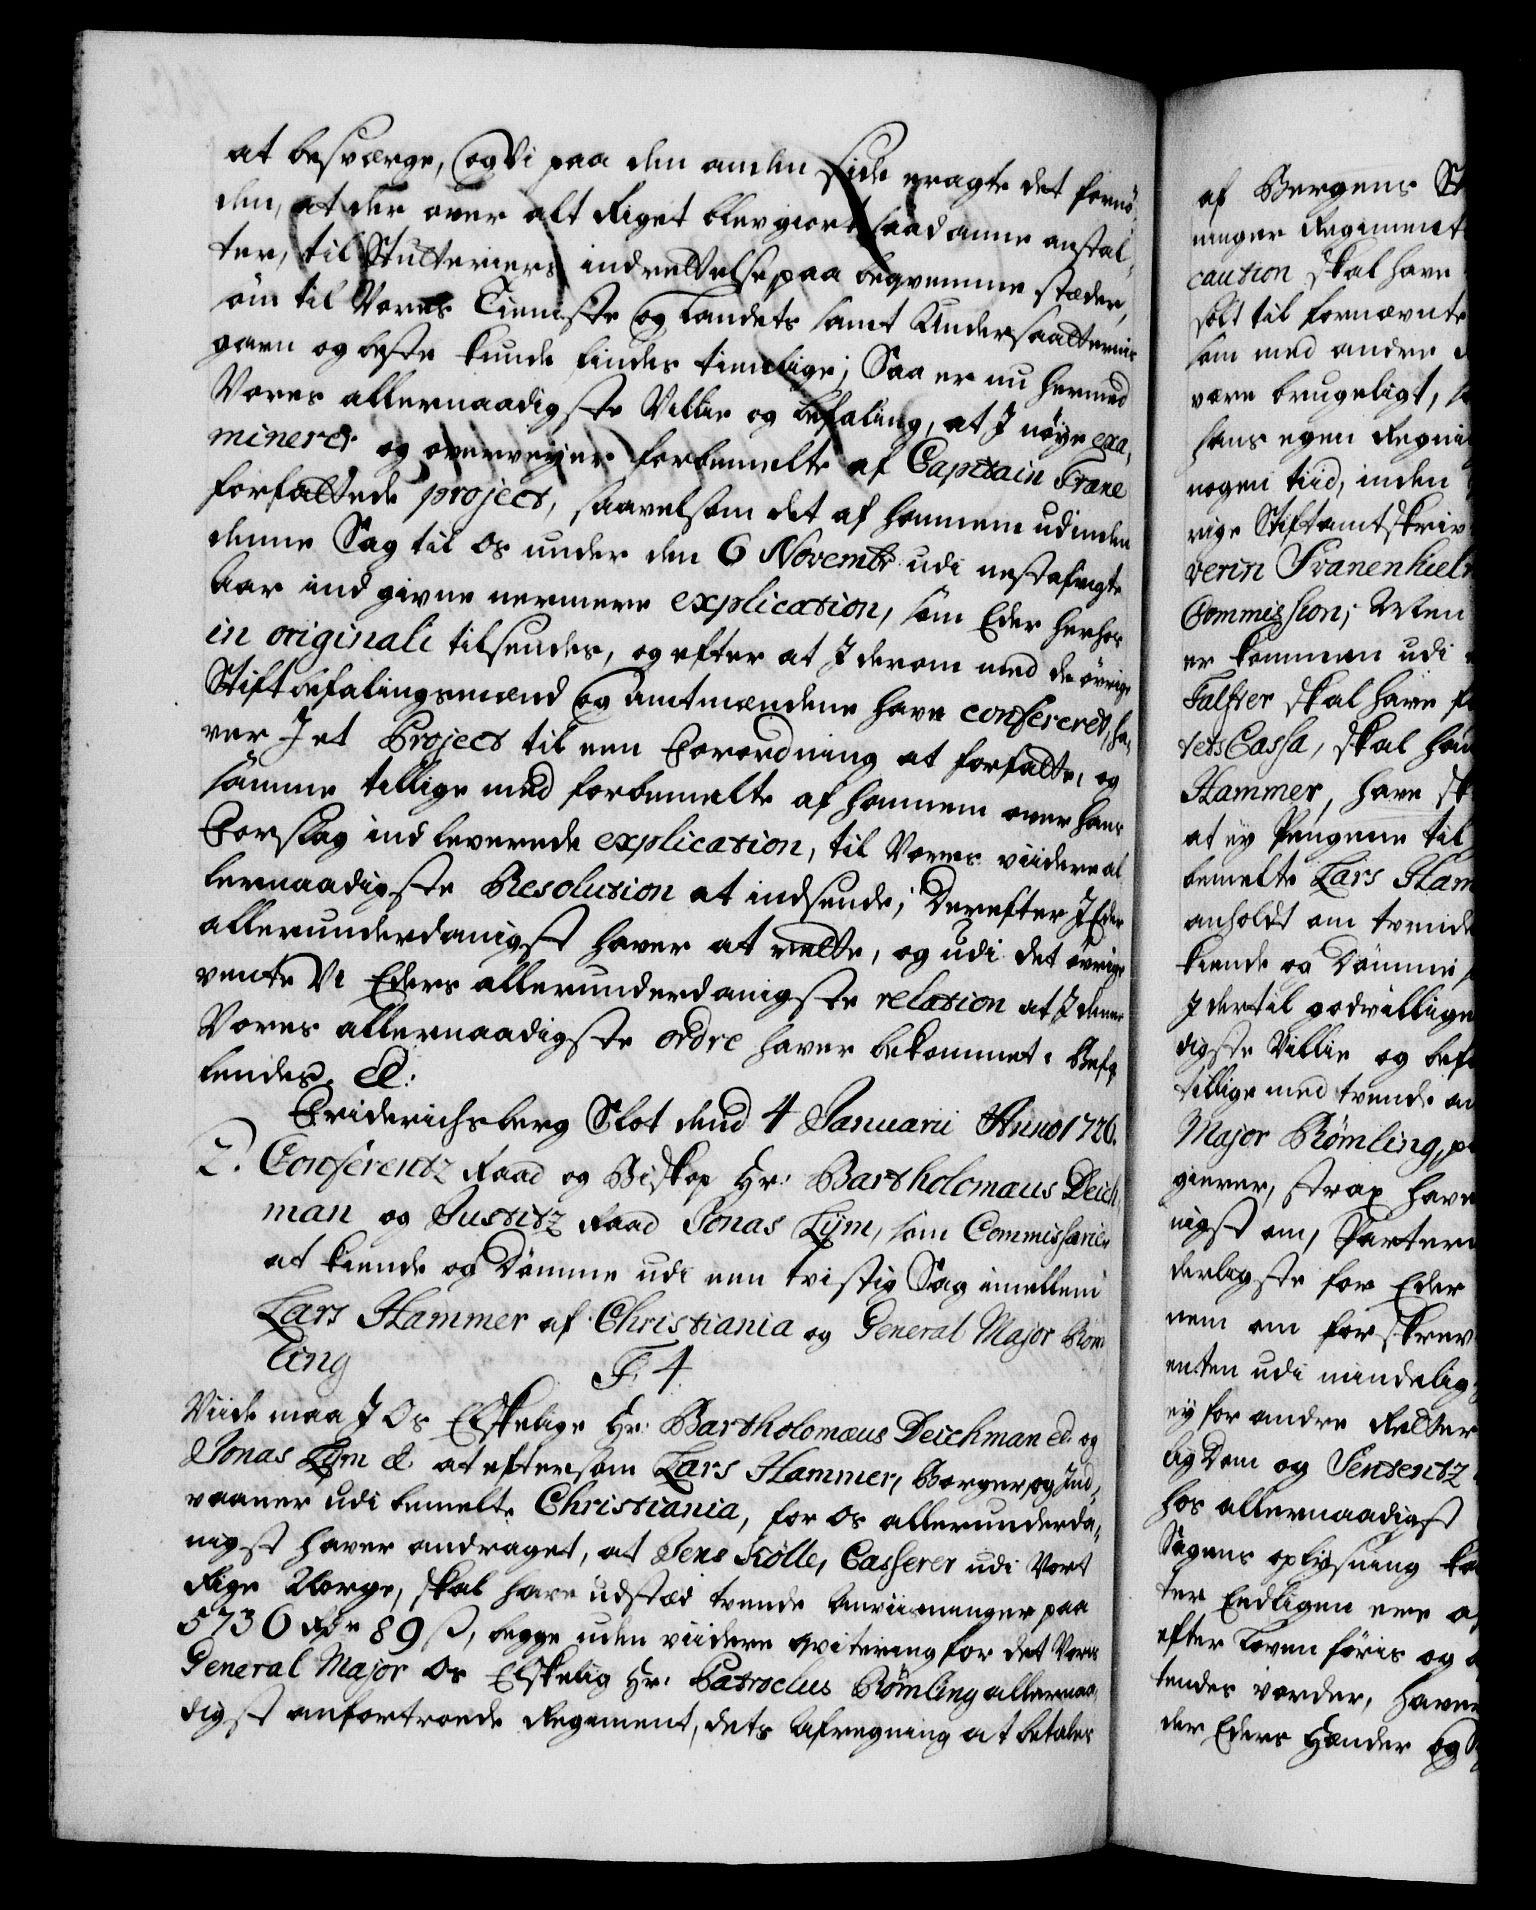 at besværge, og Vi paa den anden side eragte det fornö-
den, at der over alt Riget blev giort saadanne anstal-
ter, til Stutteriers indrettelse paa beqvemme stæder,
som til Vores Tieneste og Landets samt Undersaatternis
gavn og beste kunde findes tienlige; Saa er nu hermed
Vores allernaadigste Villie og befaling, at I nöye exa-
minerer og overveyer forbemelte af Capitain Frane
forfattede project, saavelsom det af hannem udi den
denne Sag til Os under den 6 Novembr: udi nestafvigte
Aar indgivne nermere explication, som Eder herhos
in originali tilsendes, og efter at I derom med de övrige
Stiftbefalingsmænd og Amtmændene have confereret, ha-
ver I et Project til een Forordning at forfatte, og
samme tillige med forbemelte af hannem over hans
Forslag indleverede explication, til Vores viidere al-
lernaadigste Resolution at indsende; Derefter I Eder
allerunderdanigst haver at rette, og udi det övrige
vente Vi Eders allerunderdanigste relation at I denne
Vores allernaadigste ordre haver bekommet. Befa-
lendes. &:
Friderichsberg Slot dend 4 Januarii Anno 1726.
2. Conferentz Raad og Biskop Hr: Bartholomæus Deich-
man og Justitz Raad Jonas Lÿm, som Commissarier
at kiende og Dömme udi een tvistig Sag imellem
Lars Hammer af Christiania og General Major Röm-
ling F. 4
Viide maa I Os Elskelige Hr: Bartholomæus Deichman &. og
Jonas Lÿm &. at eftersom Lars Hammer, Borger og Ind-
vaaner udi bemelte Christiania, for Os allerunderda-
nigst haver andraget, at Jens Kölle, Casserer udi Vort
Rige Norge, skal have udstæd tvende Anviisninger paa
5736 Rdr 89 ß, begge uden viidere qvitering for det Vores
General Major Os Elskelig Hr: Patroclus Römling allernaa-
digst anfortroede Regiment, dets Afregning at betales
af Bergens St
ninger Regiment
caution skal have
solt til fornævnte
som med andre
være brugeligt,
hans egen Regni
nogen tiid, inden
rige Stiftamtskriv
verin Svanenhiel
Commission; Men
er kommen udi
Falster skal have
tets Cassa, skal
Hammer, have
at ey Pengene til
bemelte Lars Ham
anholdt om tvende
kiende og Dömme
I dertil godvillige
digste Villie og bef
tillige med tvende
Major Römling,
giever, strax have
nigst om, Parter
derligste for Eder
nem om forskrev
enten udi mindelig
ey for andre Retter
lig Dom og Sententz
hos allernaadigst
Sagens oplÿsning
ter Endligen ere
efter Loven föris og
tendes vorder, have
der Eders Hænder og